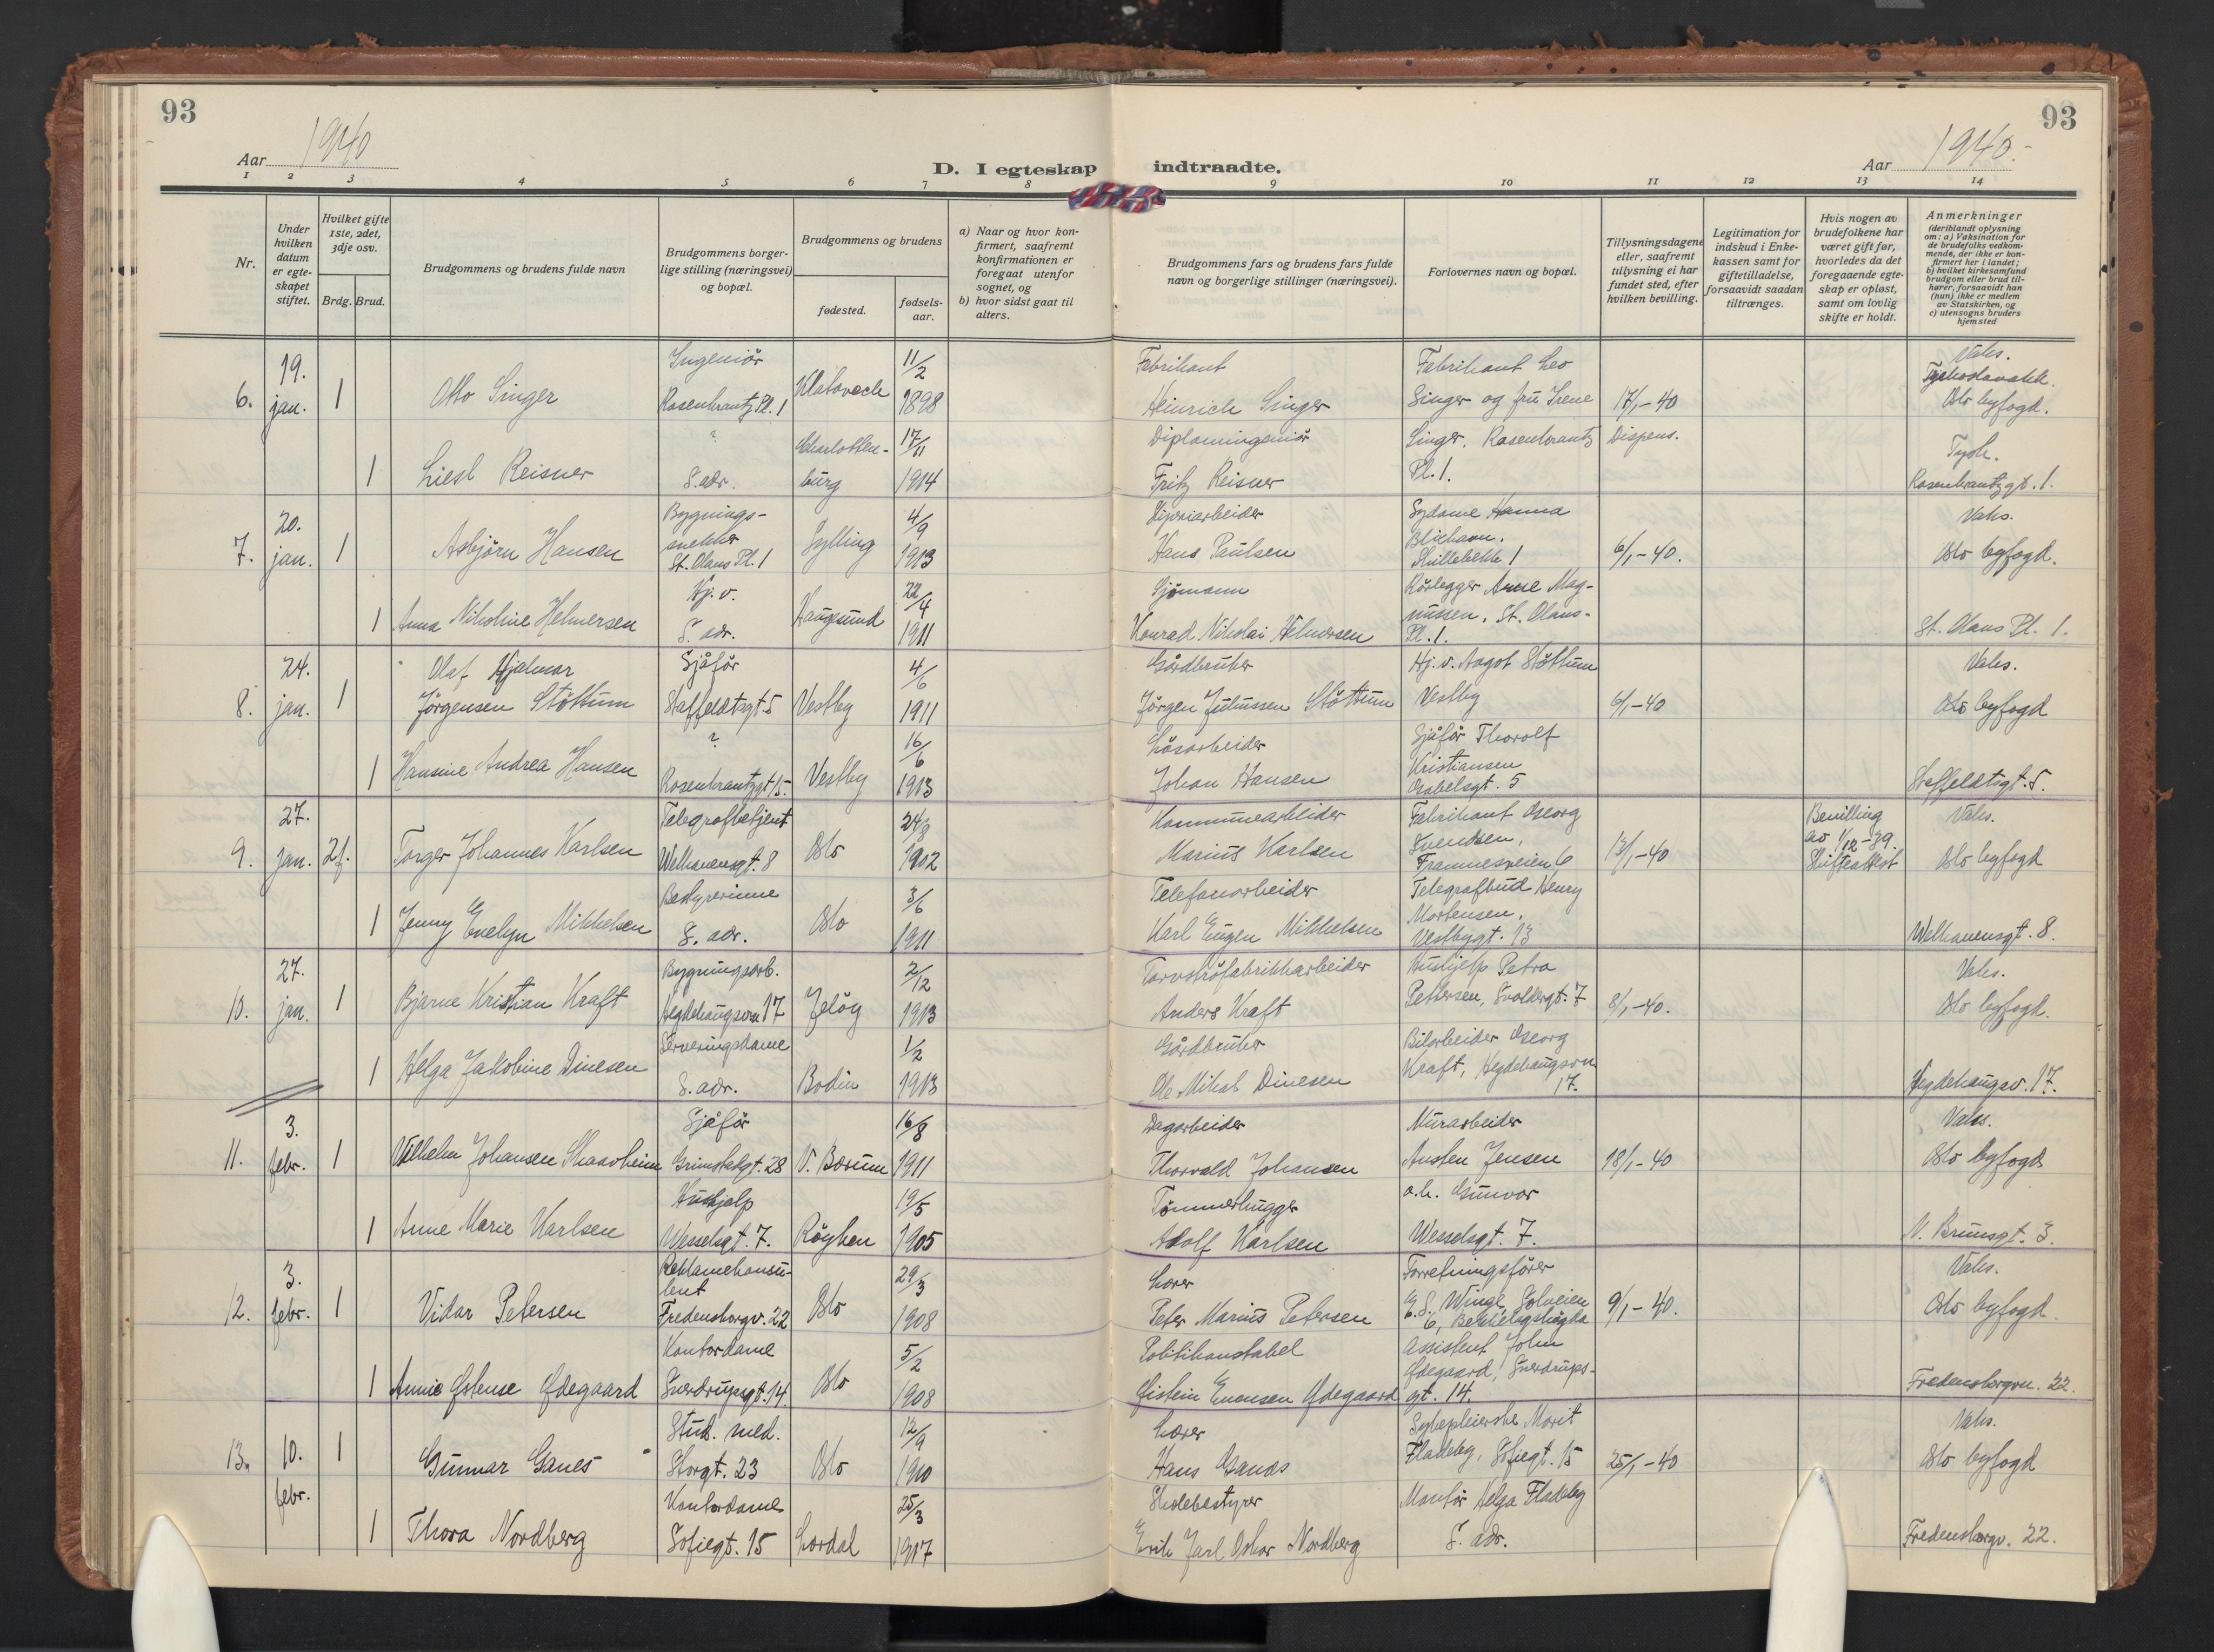 93
Aar 1940
D. I egteskap
indtraadte.
Aar 1940.-
93
1 2 3 4 5 6 7 8 9 10 11 12 13 14
Nr.
Under hvilken datum er egte-skapet stiftet.
Hvilket gifte 1ste, 2det, 3dje osv.
Brdg. Brud.
Brudgommens og brudens fulde navn
Brudgommens borger-lige stilling (næringsvei) og bopæl.
Brudgommens og brudens
fødested.
fødsels-aar.
a) Naar og hvor kon-firmert, saafremt konfirmationen er foregaat utenfor sognet, og
b) hvor sidst gaat til alters.
Brudgommens fars og brudens fars fulde navn og borgerlige stillinger (næringsvei).
Forlovernes navn og bopæl.
Tillysningsdagene eller, saafremt tillysning ei har fundet sted, efter hvilken bevilling.
Legitimation for indskud i Enke-kassen samt for giftetilladelse, forsaavidt saadan tiltrænges.
Hvis nogen av brudefolkene har været gift før, hvorledes da det foregaaende egte-skap er opløst, samt om lovlig skifte er holdt.
Anmerkninger (deriblandt oplysning om: a) Vaksination for de brudefolks vedkom-mende, der ikke er kon-firmert her i landet; b) hvilket kirkesamfund brudgom eller brud til-hører, forsaavidt han (hun) ikke er medlem av Statskirken, og c) utensogns bruders hjemsted
6. 19. jan. 1 Otto Singer
Ingeniör Rosenkrantz Pl. 1
11/2 1898
Fabrikant Heinrich Singer
Fabrikant Leo Singer og fru Irene
17/1-40
Vaks.
Oslo byfogd.
1 Liesl Reisner
? S. adr.
Charlotten-burg
17/11 1914
Diplomingeniör Fritz Reisner
Singer. Rosenkrantz Pl. 1.
Dispens.
Tysk.
Rosenkrantzgt. 1.
7. 20. jan. 1 Asbjörn Hansen
Bygnings-snekker St. Olavs Pl. 1
Sylling
4/9 1913
Hans Paulsen
Sydame Hanna
Skillebekk 1
6/1-40.
Vaks.
Oslo byfogd.
1 Anna Nikoline Helmersen
Hj. v. S. adr.
Haugsund
22/4 1911
Sjömann Konrad Nikolai Helmersen
Rörlegger Arne Mag-nussen. St. Olavs-Pl. 1.
St. Olavs Pl. 1.
8. 24. jan. 1 Olaf Hjalmar Jörgensen Stöttum
Sjåför Staffeldtsgt 5
Vestby
4/6 1911
Gårdbruker Jörgen Juliussen Stöttum
Hj. v. Aagot Stöttum Vestby
6/1-40
Vaks.
Oslo byfogd
1 Hansine Andrea Hansen
? Rosenkrantzgt 15.
Vestby
16/6 1913
Lösarbeider Johan Hansen
Sjåför Thorolf Kristiansen Gabelsgt. 5
Staffeldtsgt. 5.
9. 27. jan. 2f. Torger Johannes Karlsen
Telegrafbetjent Welhavensgt. 8
Oslo
24/8 1902
Kommunearbeider Marius Karlsen
Fabrikant Georg Svendsen, Framnesveien 6
13/1-40
Bevilling av 1/12-39. Skifteattest
Vaks.
Oslo byfogd
1 Jenny Evelyn Mikkelsen
Bestyrerinne S. adr.
Oslo
3/6 1911
Telefonarbeider Karl Eugen Mikkelsen
Telegrafbud Henry Mortensen. Vestbygt. 13
Welhavensgt. 8.
10. 27. jan. 1 Bjarne Kristian Kraft
Bygningsarb. Hegdehaugsvn 17
Jelöy
2/12 1913
Torvströfabrikkarbeider Anders Kraft
Hushjelp Petra Pettersen, Svoldergt. 7
8/1-40.
Vaks.
Oslo byfogd.
1 Helga Jakobine Dinesen
Serveringsdame S. adr.
Bodin
1/2 1913
Gårdbruker Ole Mikal Dinesen
Bilarbeider Georg Kraft, Hegdehaugsvn 17.
Hegdehaugsv. 17.
11. 3. febr. 1 Vilhelm Johansen Skaarheim
Sjåför Grimstadgt. 28
V. Bærum
16/8 1911
Dagarbeider Thorvald Johansen
Murarbeider Austen Jensen
18/1-40
Vaks.
Oslo byfogd
1 Anne Marie Karlsen
Hushjelp Wesselsgt. 7.
Röyken
19/5 1905
Tömmerhugger Adolf Karlsen
Gunvor Wesselsgt. 7.
N. Brunsgt. 3.
12. 3. febr. 1 Vidar Petersen
Reklamekonsu-lent Fredensborgv. 22
Oslo
29/3 1908
Lærer Peter Marius Petersen
Forretningsförer E. S. Winge, Solveien 6, Bekkelagshögda
9/1-40.
Vaks.
Oslo byfogd.
1 Annie Østense Ødegaard
Kontordame Sverdrupsgt. 14.
Oslo
5/2 1908
Politikonstabel Øistein Evensen Ødegaard
Assistent John Ødegaard, Sverdrups-gt. 14.
Fredensborgvn. 22.
13. 10. febr. 1 Gunnar Ganes
Stud. med. Storgt. 23
Oslo
12/9 1910
Lærer Hans Ganes
Sykepleierske Marit Fladeby, Sofiegt. 15
25/1-40
Vaks.
Oslo byfogd
1 Thora Nordberg
Kontordame Sofiegt. 15
Lærdal
25/3 1917
Skolebestyrer Erik Jarl Oskar Nordberg
Montör Helga Fladeby S. adr.
Fredensborgv. 22.